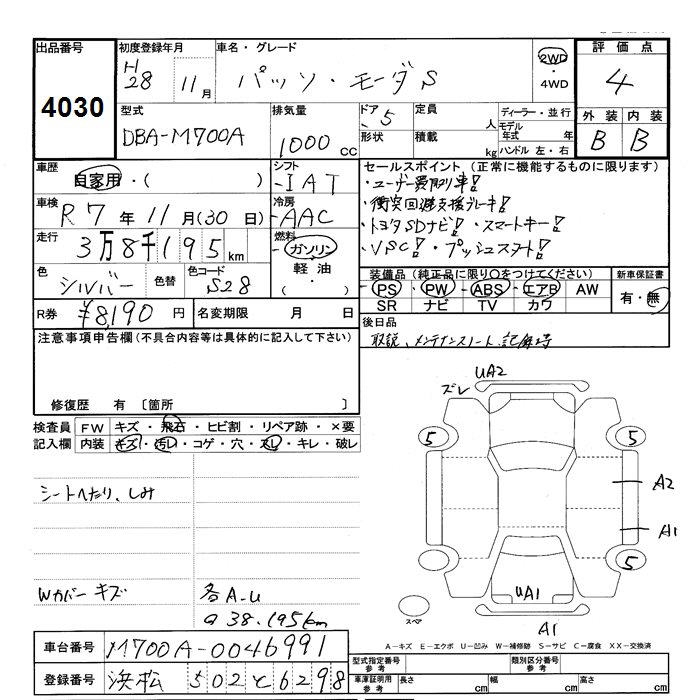 出品番号
4030
初度登録年月
H28 11月
車名・グレード
パッソ・モーダS
2WD
4WD
評価点
4
外装 内装
B B
型式
DBA-M700A
排気量
1000 cc
ドア 5
形状
定員 人
積載 kg
ディーラー・並行
モデル年式 年
ハンドル 左・右
車歴
自家用・( )
シフト
-IAT
車検
R7年11月(30日)
冷房
-AAC
走行
3万8千195km
燃料
ガソリン
軽油
( ・ )
色
シルバー
色替
色コード
S28
セールスポイント(正常に機能するものに限ります)
・ユーザー買取り車!
・衝突回避支援ブレーキ!
・トヨタSDナビ!・スマートキー!
・VSC!・プッシュスタート!
装備品(純正品に限り○をつけてください)
PS PW ABS エアB AW
SR ナビ TV カワ
新車保証書
有・無
R券 ¥8,190円
名変期限 月 日
後日品
取説、メンテナンスノート、記録簿
注意事項申告欄(不具合内容等は具体的に記入して下さい)
修復歴 有〔箇所 〕
検査員記入欄
FW キズ・飛石・ヒビ割・リペア跡・×要
内装 キズ・汚レ・コゲ・穴・スレ・キレ・破レ
シートへたり、しみ
Wカバー キズ
各A-U
38.195km
ズレ UA2
5 5
A2
A1
5
UA1
スペア
A1
A-キズ E-エクボ U-凹み W-補修跡 S-サビ C-腐食 XX-交換済
車台番号 M700A-0046991
登録番号 浜松 502 と 6298
型式指定番号 参考
類別区分番号 参考
車庫証明用 参考 長さ cm 幅 cm 高さ cm